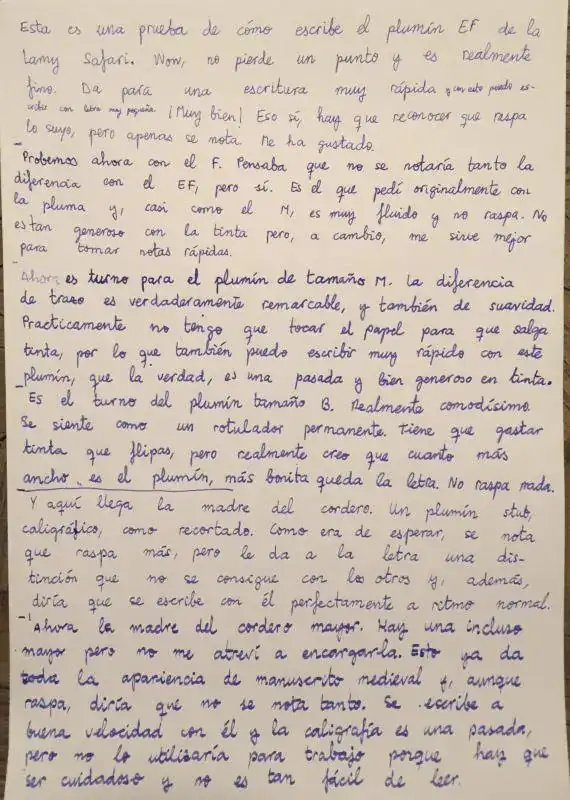 Esta es una prueba de cómo escribe el plumín EF de la
Lamy Safari. Wow, no pierde un punto y es realmente
fino. Da para una escritura muy rápida y con esto puedo es-
cribir con letra muy pequeña ¡Muy bien! Eso sí, hay que reconocer que raspa
lo suyo, pero apenas se nota. Me ha gustado.
Probemos ahora con el F. Pensaba que no se notaría tanto la
diferencia con el EF, pero sí. Es el que pedí originalmente con
la pluma y, casi como el M, es muy fluido y no raspa. No
es tan generoso con la tinta pero, a cambio, me sirve mejor
para tomar notas rápidas.
Ahora es turno para el plumín de tamaño M. La diferencia
de trazo es verdaderamente remarcable, y también de suavidad.
Practicamente no tengo que tocar el papel para que salga
tinta, por lo que también puedo escribir muy rápido con este
plumín, que la verdad, es una pasada y bien generoso en tinta.
Es el turno del plumín tamaño B. Realmente comodísimo.
Se siente como un rotulador permanente. Tiene que gastar
tinta que flipas, pero realmente creo que cuanto más
ancho es el plumín, más bonita queda la letra. No raspa nada.
Y aquí llega la madre del cordero. Un plumín stub,
caligráfico, como recortado. Como era de esperar, se nota
que raspa más, pero le da a la letra una dis-
tinción que no se consigue con los otros y, además,
diría que se escribe con él perfectamente a ritmo normal.
Ahora la madre del cordero mayor. Hay una incluso
mayor pero no me atreví a encargarla. Esto ya da
toda la apariencia de manuscrito medieval y, aunque
raspa, diría que no se nota tanto. Se escribe a
buena velocidad con él y la caligrafía es una pasada,
pero no lo utilisaría para trabajo porque hay que
ser cuidadoso y no es tan fácil de leer.